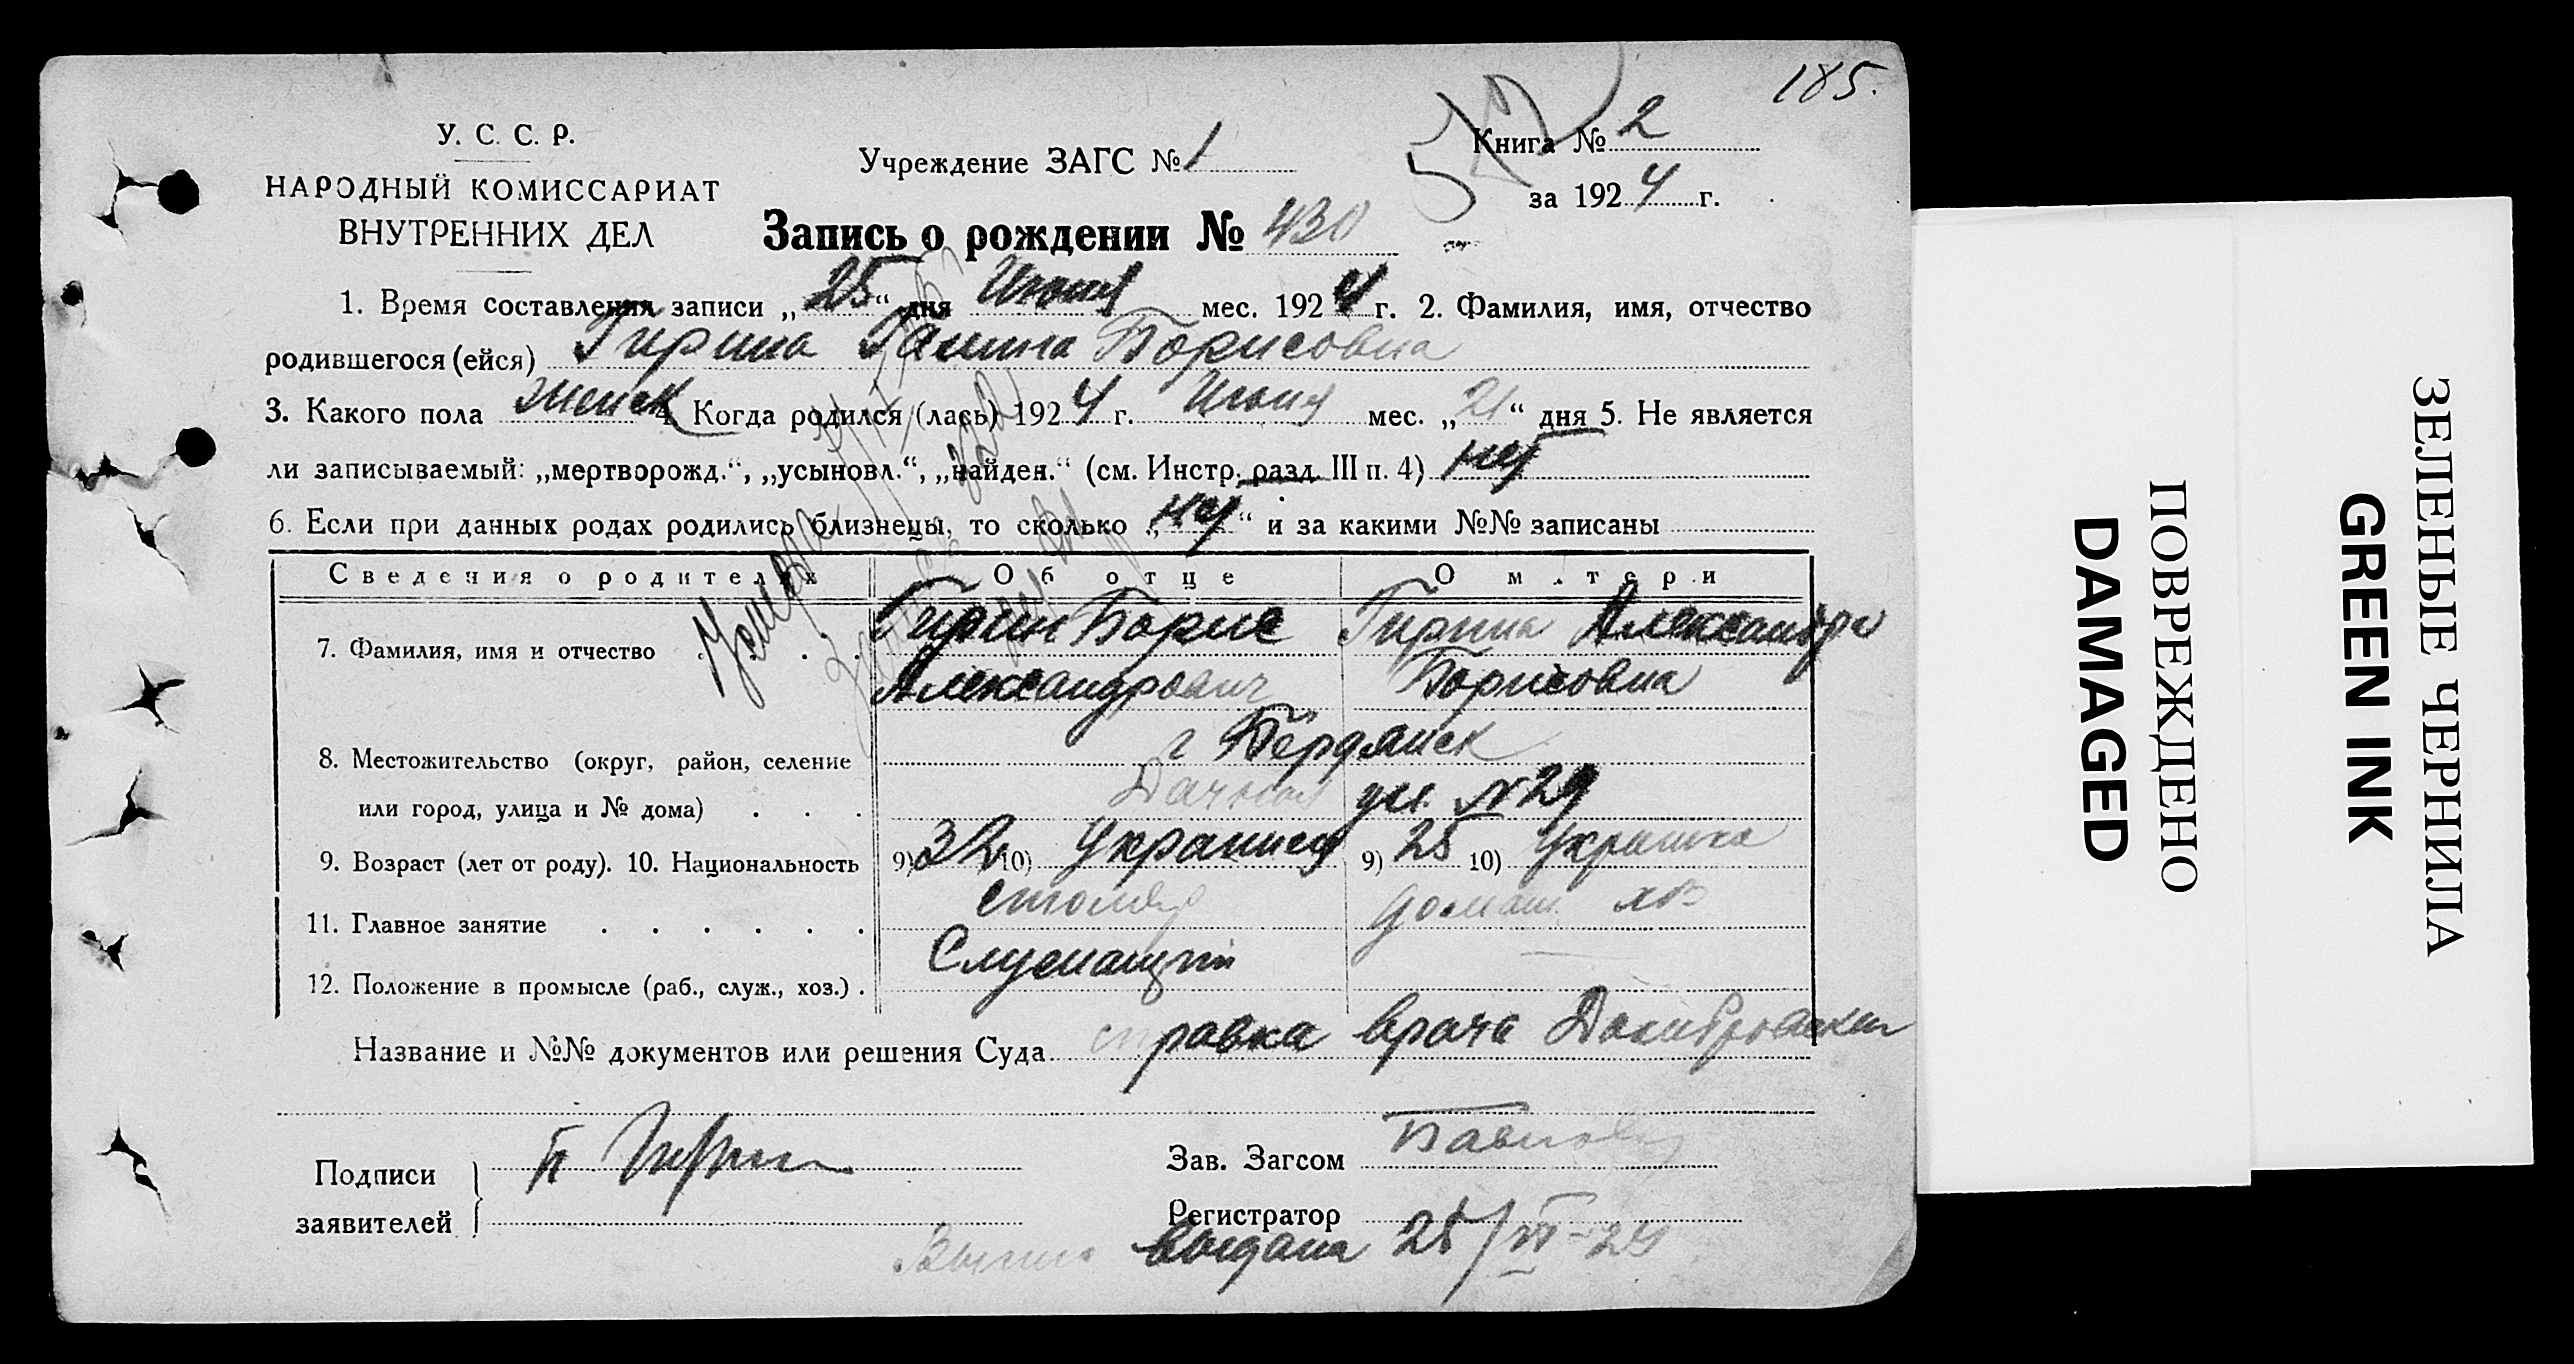 185.
У. С. С. Р.
НАРОДНЫЙ КОМИССАРИАТ
ВНУТРЕННИХ ДЕЛ
Учреждение ЗАГС № 1
Книга № 2
за 1924 г.
Запись о рождении № 430
1. Время составления записи „25“ дня Июня мес. 1924 г. 2. Фамилия, имя, отчество
родившегося (ейся) Гирина Галина Борисовна
3. Какого пола женск 4. Когда родился (лась) 1924 г. Июня мес. „21“ дня 5. Не является
ли записываемый: „мертворожд.“, „усыновл.“, „найден.“ (см. Инстр. разд. III п. 4) нет
6. Если при данных родах родились близнецы, то сколько „нет“ и за какими №№ записаны
Сведения о родителях Об отце О матери
7. Фамилия, имя и отчество Гирин Борис Гирина Александра
Александрович Борисовна
8. Местожительство (округ, район, селение г Бердянск
или город, улица и № дома) Дачная ул. N 29
9. Возраст (лет от роду). 10. Национальность 9) 32 10) Украинец 9) 25 10) Украинка
11. Главное занятие столяр домаш. хоз
12. Положение в промысле (раб., служ., хоз.) Служащий
Название и №№ документов или решения Суда справка врача
Подписи
заявителей
Б Гирин
Зав. Загсом
Регистратор
выдана 25/VI-24
ПОВРЕЖДЕНО
DAMAGED
ЗЕЛЕНЫЕ ЧЕРНИЛА
GREEN INK